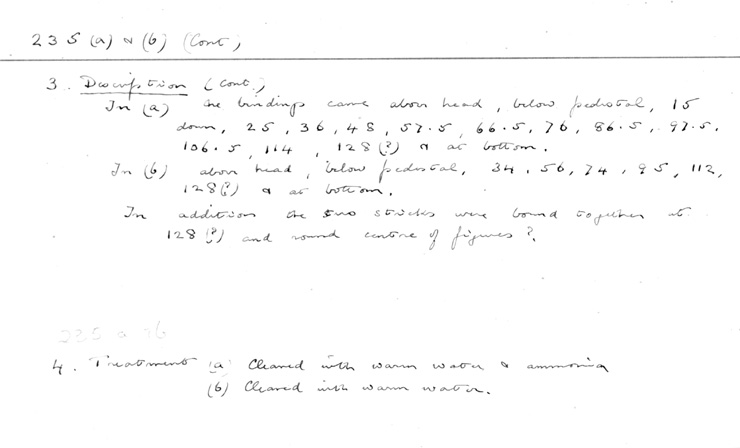 235 (a) & (b) (Cont)
3. Description (Cont.)
In (a) the bindings came above head, below pedestal, 15
down, 25, 36, 48, 57.5, 66.5, 76, 86.5, 97.5,
106.5, 114, 128(?) & at bottom.
In (b) above head, below pedestal, 34, 56, 74, 95, 112,
128(?) & at bottom.
In addition the two sticks were bound together at
128(?) and round centre of figures?
235 a
4. Treatment (a) Cleaned with warm water & ammonia
(b) Cleaned with warm water.